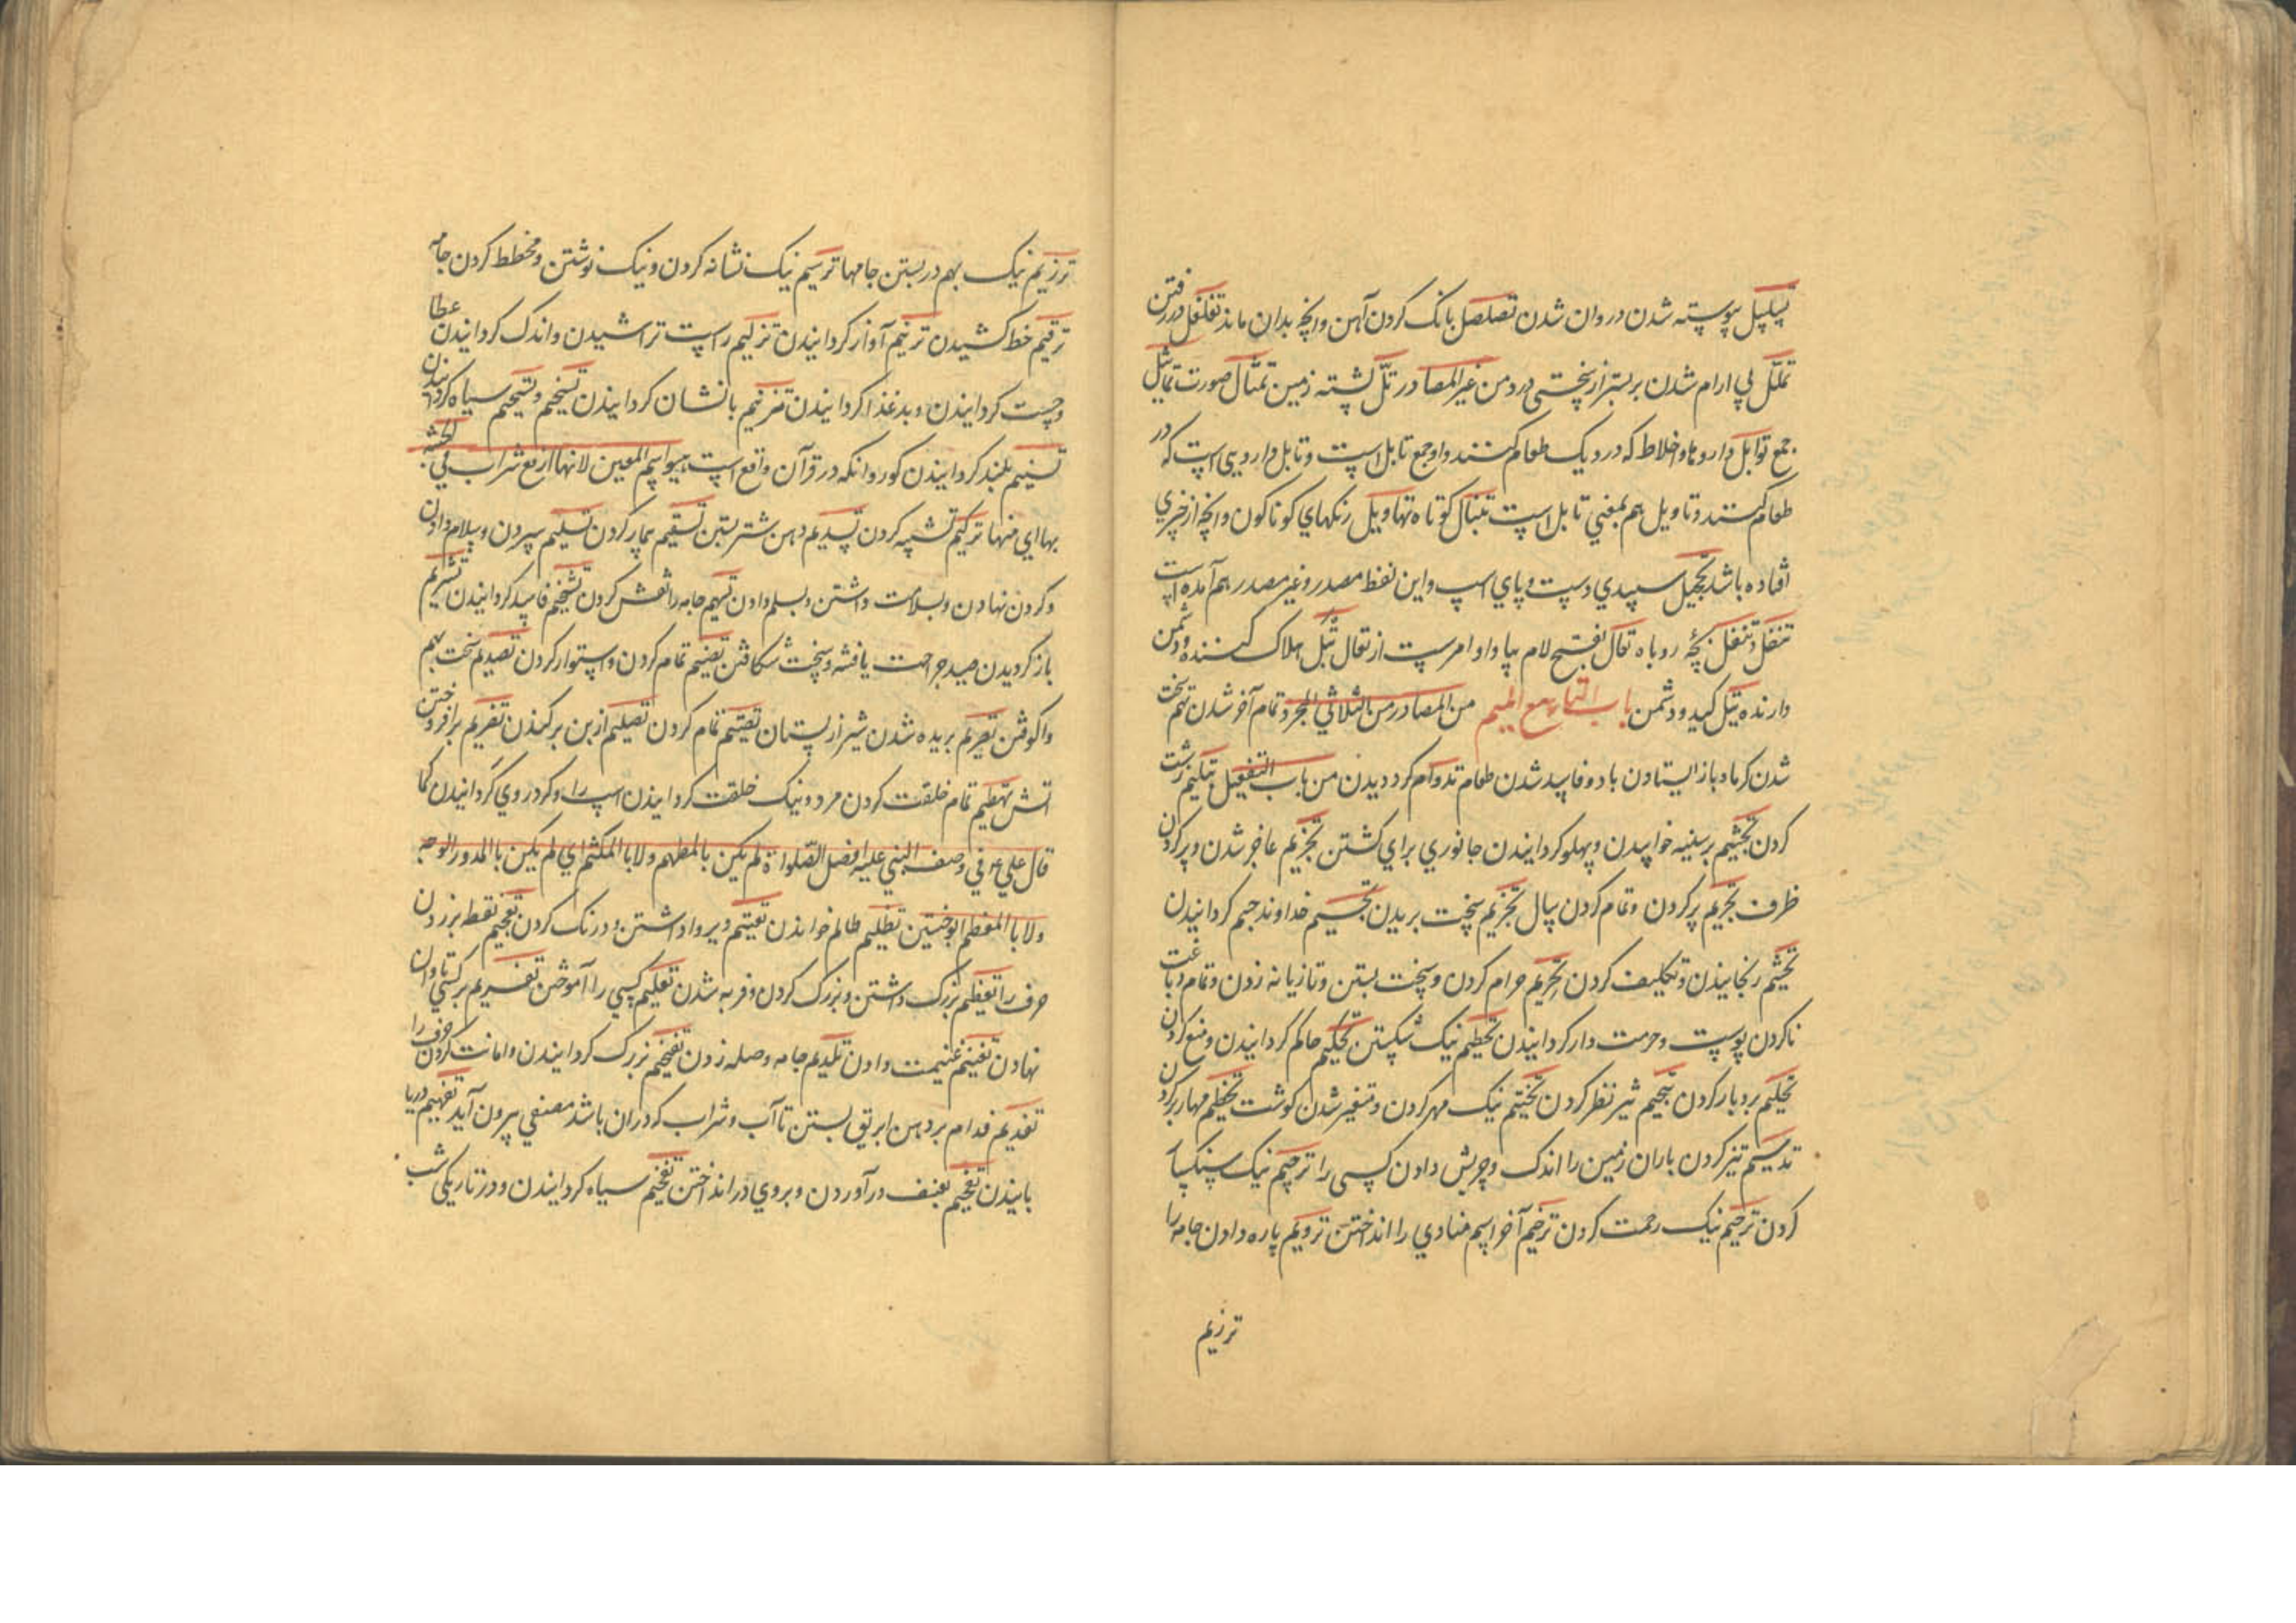 تسلسل پیوسته شدن در وان شدن تصلصل بانک کردن آهن وانچه بدان ماند تغلغل در رفتن
تملل بی ارام شدن بر بستر از سختی درد من غیر المصادر تل پشته زمین تمثال صورت تماثیل
جمع توابل داروها و اخلاط که در دیک طعام کنند واو جمع تابل است و تابل داروییست که در
طعام کنند و تاویل هم بمعنی تابل است تنبال کوتاه تهاویل رنکهای کوناکون وانچه از چیزی
افتاده باشد تحجیل سپیدی دست و پای اسپ و این لفظ مصدر و غیر مصدر هم آمده است
تتفل و تنفل بچه روباه تعال بفتح لام بیا واو امرست از تعال تبل هلاک کننده و دشمن
دارنده تبل کید و دشمن باب التاء مع المیم من المصادر من الثلاثی المجرد تمام آخر شدن تهم سخت
شدن کرما و باز ایستادن باد و فاسد شدن طعام تدوام کرد دیدن من باب التفعیل تثلیم زشت
کردن تجثیم بر سینه خواپیدن و پهلو کردانیدن جانوری برای کشتن تجزیم عاجز شدن و پر کردن
ظرف تجریم پر کردن و تمام کردن سال تجزیم سخت بریدن تجسیم خداوند جسم کردانیدن
تجشم رنجانیدن و تکلیف کردن تحریم حرام کردن و سخت بستن و تازیانه زدن و تمام دباغت
ناکردن پوست و حرمت دار کردانیدن تحطیم نیک شکستن تحکیم حاکم کردانیدن و منع کردن
تحلیم بردبار کردن تحمیم تیز نظر کردن تختیم نیک مهر کردن و متغیر شدن کوشت تخطیم مهار بر کردن
تدسیم تیز کردن باران زمین را اندک و چربش دادن کسی را ترجیم نیک سنکسار
کردن ترحیم نیک رحمت کردن ترخیم آخر اسم منادی را انداختن تردیم پاره دادن جامه را
ترزیم
ترزیم نیک بهم در بستن جامها ترسیم نیک نشانه کردن و نیک نوشتن و مخطط کردن جامه
ترقیم خط کشیدن ترنیم آواز کردانیدن تزلیم راست تراشیدن و اندک کردانیدن عطا
و چست کردانیدن و بد غذا کردانیدن تزنیم با نشان کردانیدن تسخیم و تسحیم سیاه کردانیدن
تسنیم بلند کردانیدن کور وانکه در قرآن واقع است هو اسم العین لانها ارفع شراب فی الجنة
بها ای منها ترکیم تشبیه کردن تسدیم دهن شتر بستن تسقیم بیمار کردن تسلیم سپردن و سلام دادن
و کردن نهادن و بسلامت داشتن و بسلم دادن تسهیم جامه را نقش کردن تشخیم فاسد کردانیدن تشریم
باز کردیدن صید جراحت یافته و سخت شکافتن تصمیم تمام کردن و استوار کردن تصدیم سخت بهم
واکوفتن تصریم بریده شدن شیر از پستان تصتیم تمام کردن تصلیم از بن بر کندن تضریم بر افروختن
اتش تطهیم تمام خلقت کردن مرد و نیک خلقت کردانیدن اسپ را و کرد روی کردانیدن کما
قال علی ع فی وصف النبی علیه افضل الصلواة لم یکن بالمطهم ولا بالمکلثم ای لم یکن بالمدور الوجه
ولا بالمعظم الوجنتین تظلیم ظالم خواندن تعتیم دیر واداشتن و درنک کردن تعجیم نقط بر زدن
حرف را تعظیم بزرک داشتن و بزرک کردن و فربه شدن تعلیم کسی را آموختن تغریم بر کسی تاوان
نهادن تغنیم غنیمت دادن تلدیم جامه وصله زدن تفخیم بزرک کردانیدن و امانت کردن حرف را
تفدیم فدام بر دهن ابریق بستن تا آب و شراب که در ان باشد مصفی بیرون آید تفهیم دریا
بانیدن تقحیم بعنف در آوردن و بروی در انداختن تفحیم سیاه کردانیدن و در تاریکی شب